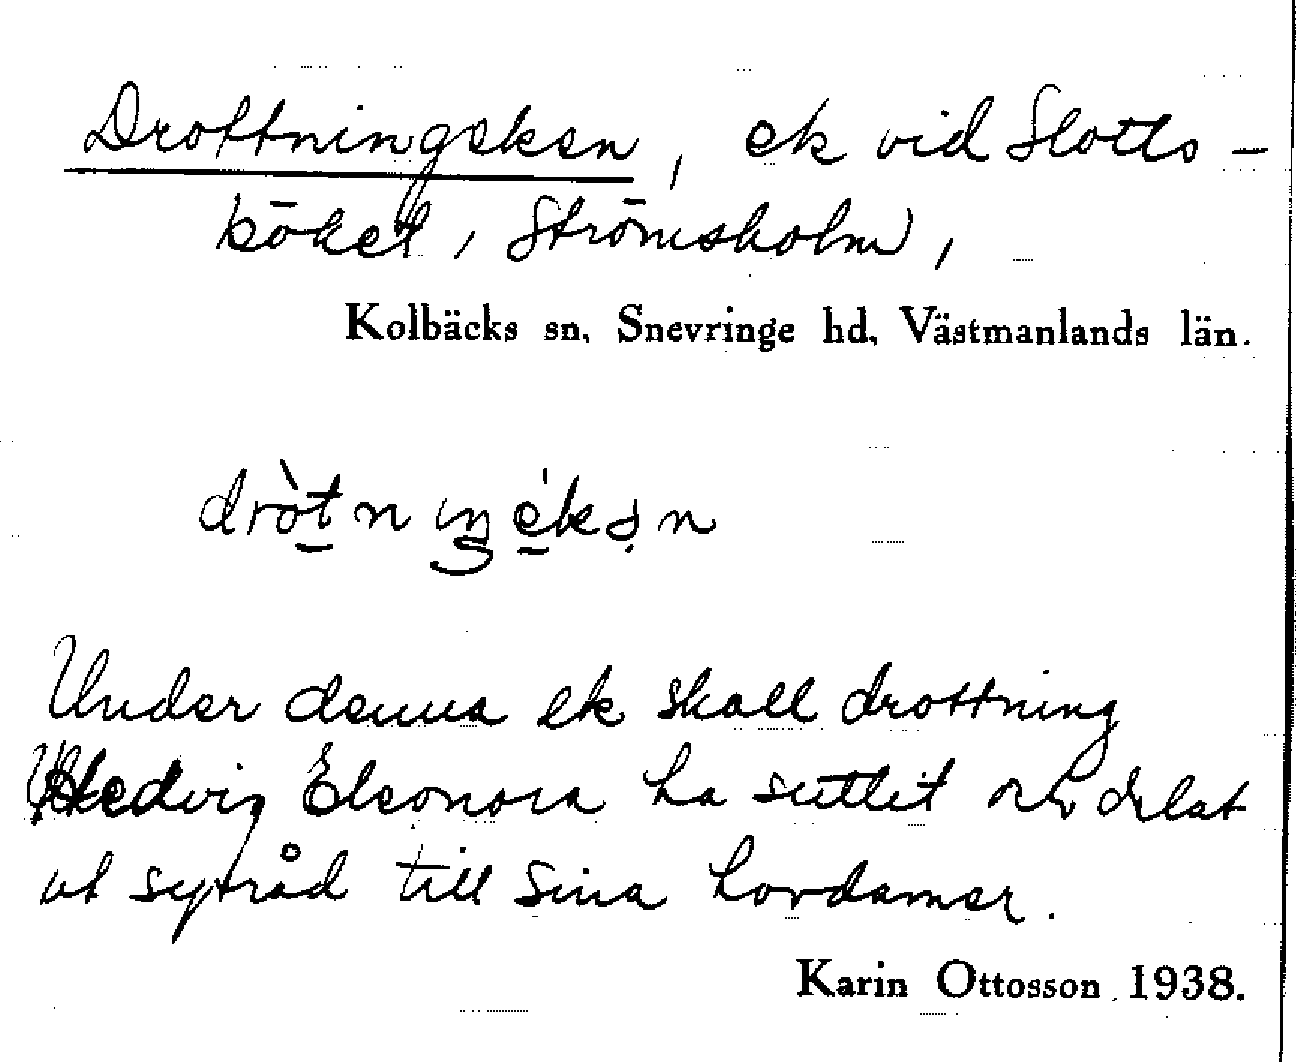 Drottningeken, ek vid Slotts-
köket, Strömsholm,
Kolbäcks sn, Snevringe hd, Västmanlands län.
Under denna ek skall drottning
Hedvig Eleonora ha suttit och delat
ut sytråd till sina hovdamer.
Karin Ottosson 1938.